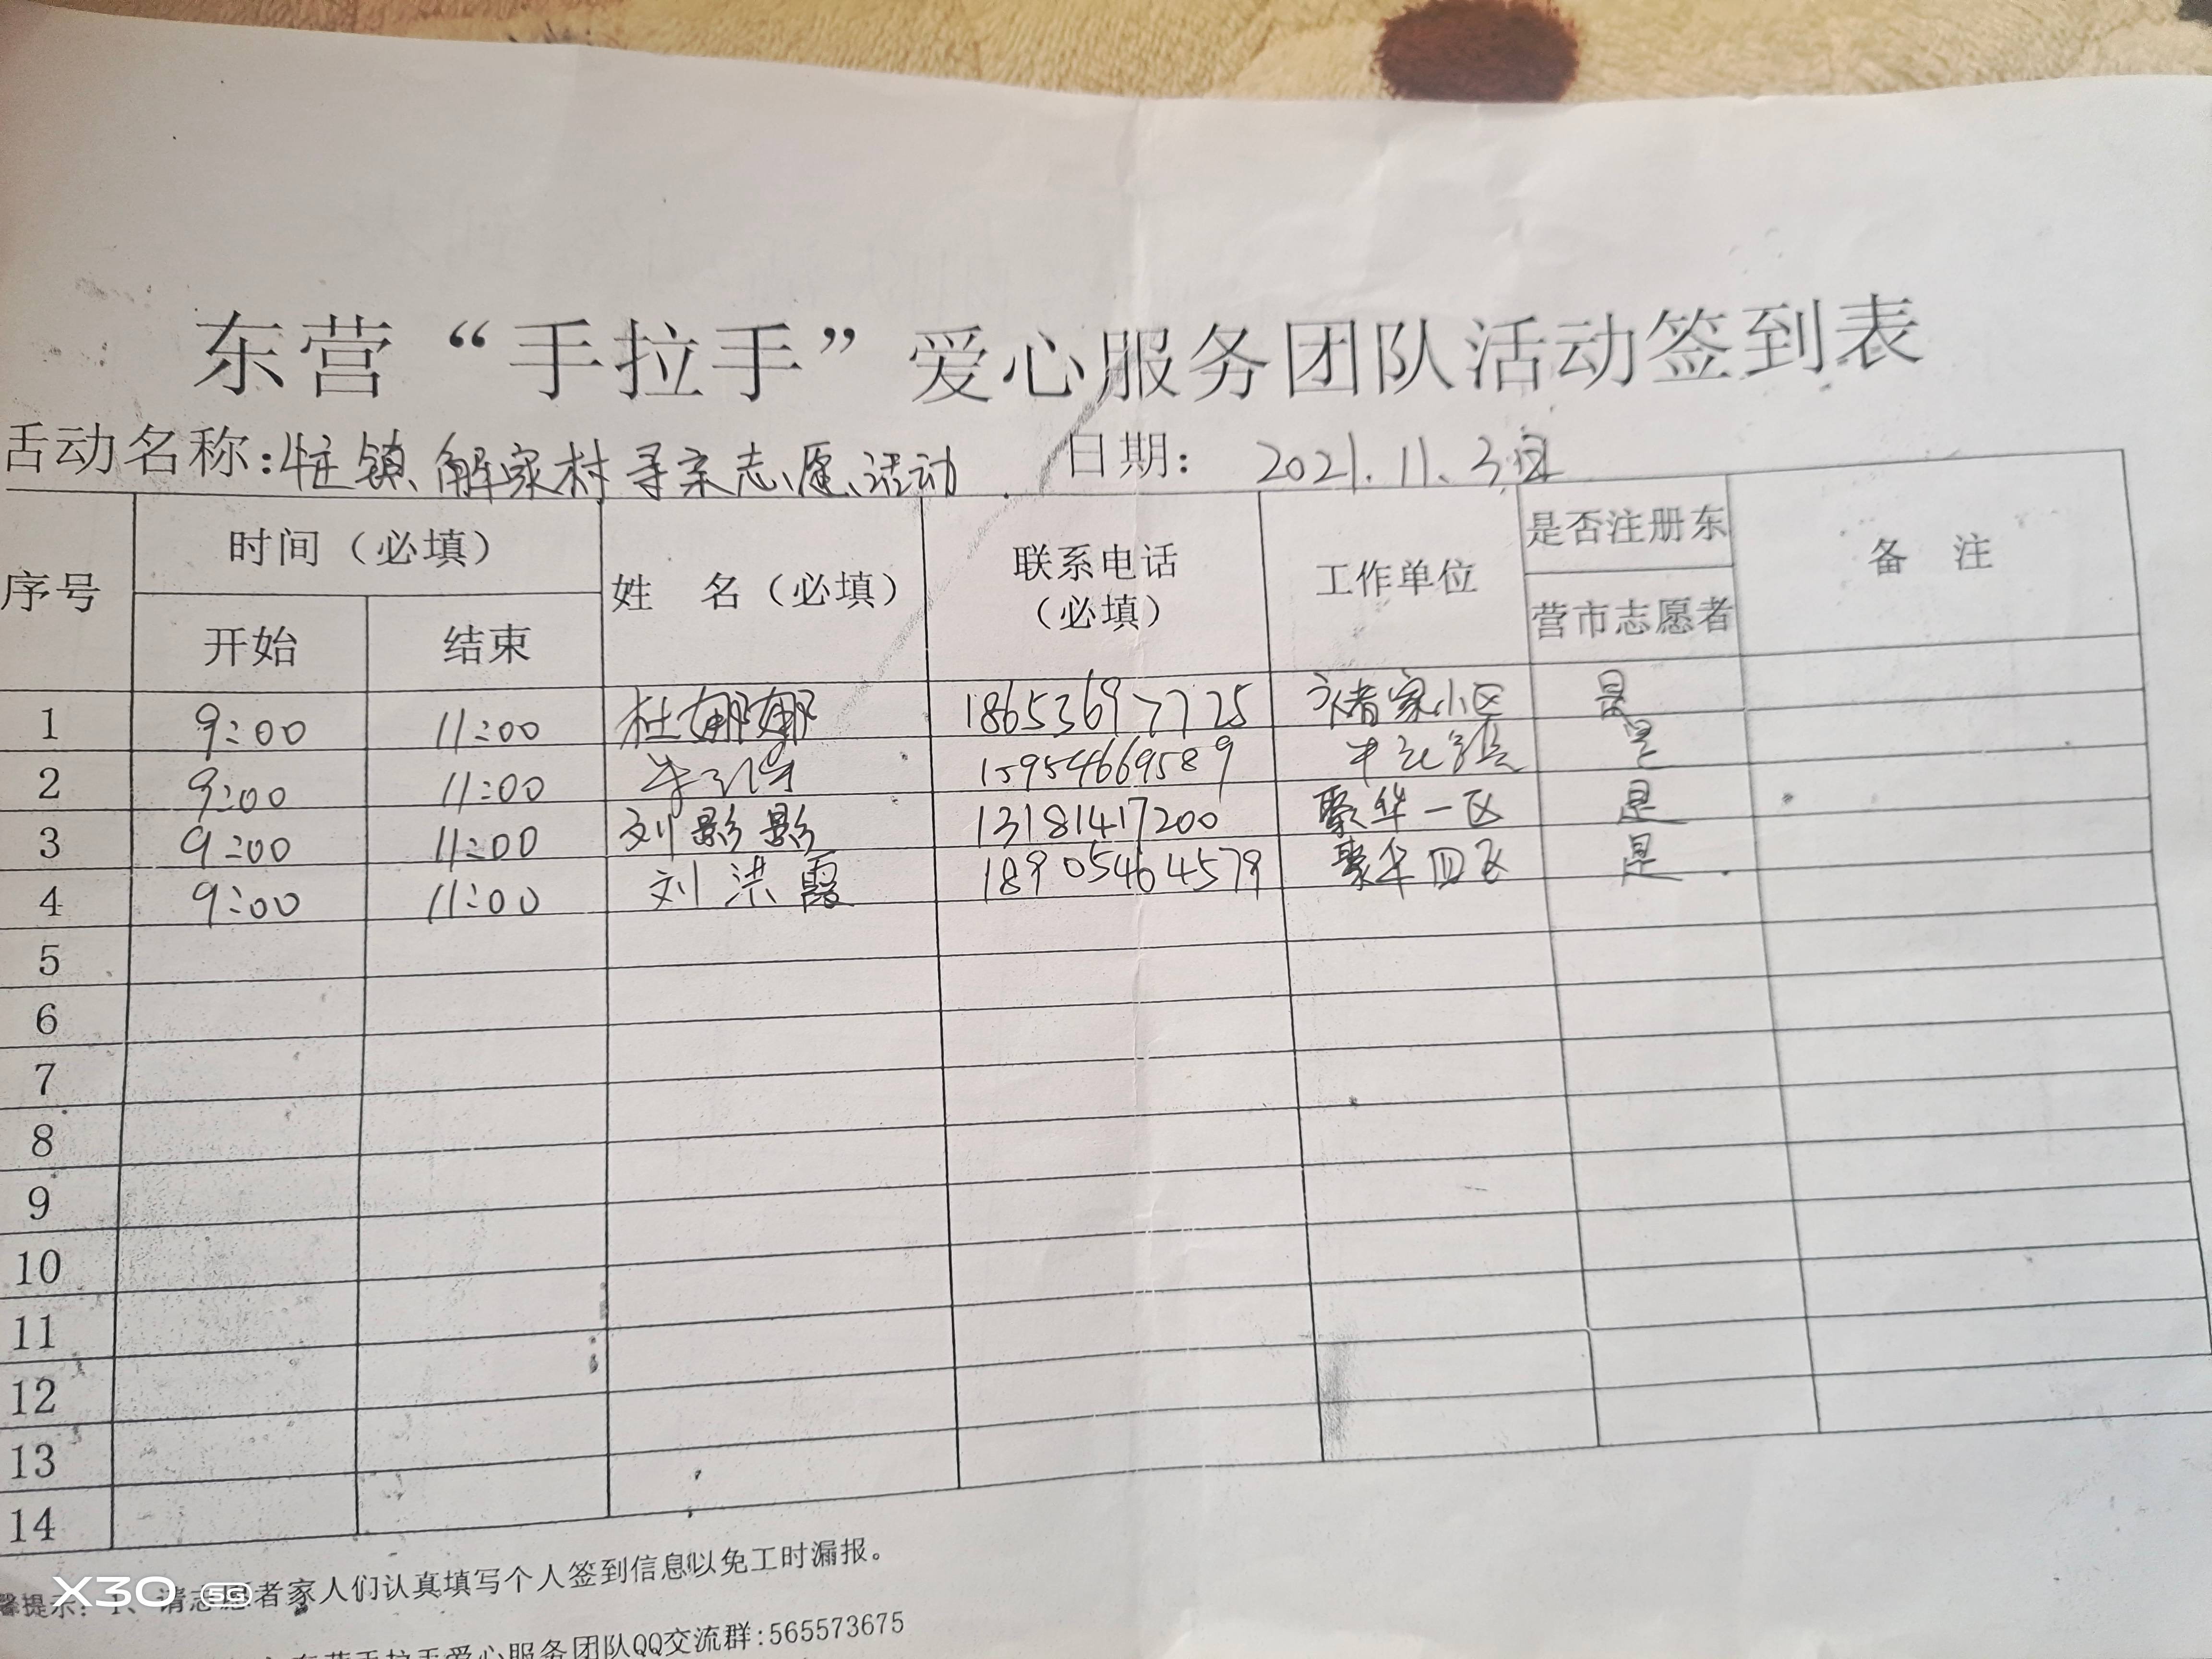 东营“手拉手”爱心服务团队活动签到表
活动名称: 镇解家村寻亲志愿活动 日期: 2021.11.3日
序号 时间（必填） 姓 名（必填） 联系电话（必填） 工作单位 是否注册东营市志愿者 备 注
开始 结束
1 9:00 11:00 杜娜娜 18653697725 褚家小区 是
2 9:00 11:00 15954669589 是
3 9:00 11:00 刘影影 13181417200 聚华一区 是
4 9:00 11:00 刘洪霞 18905464579 聚华四区 是
5
6
7
8
9
10
11
12
13
14
馨提示: 1、请志愿者家人们认真填写个人签到信息以免工时漏报。
东营手拉手爱心服务团队QQ交流群:565573675
X30 5G